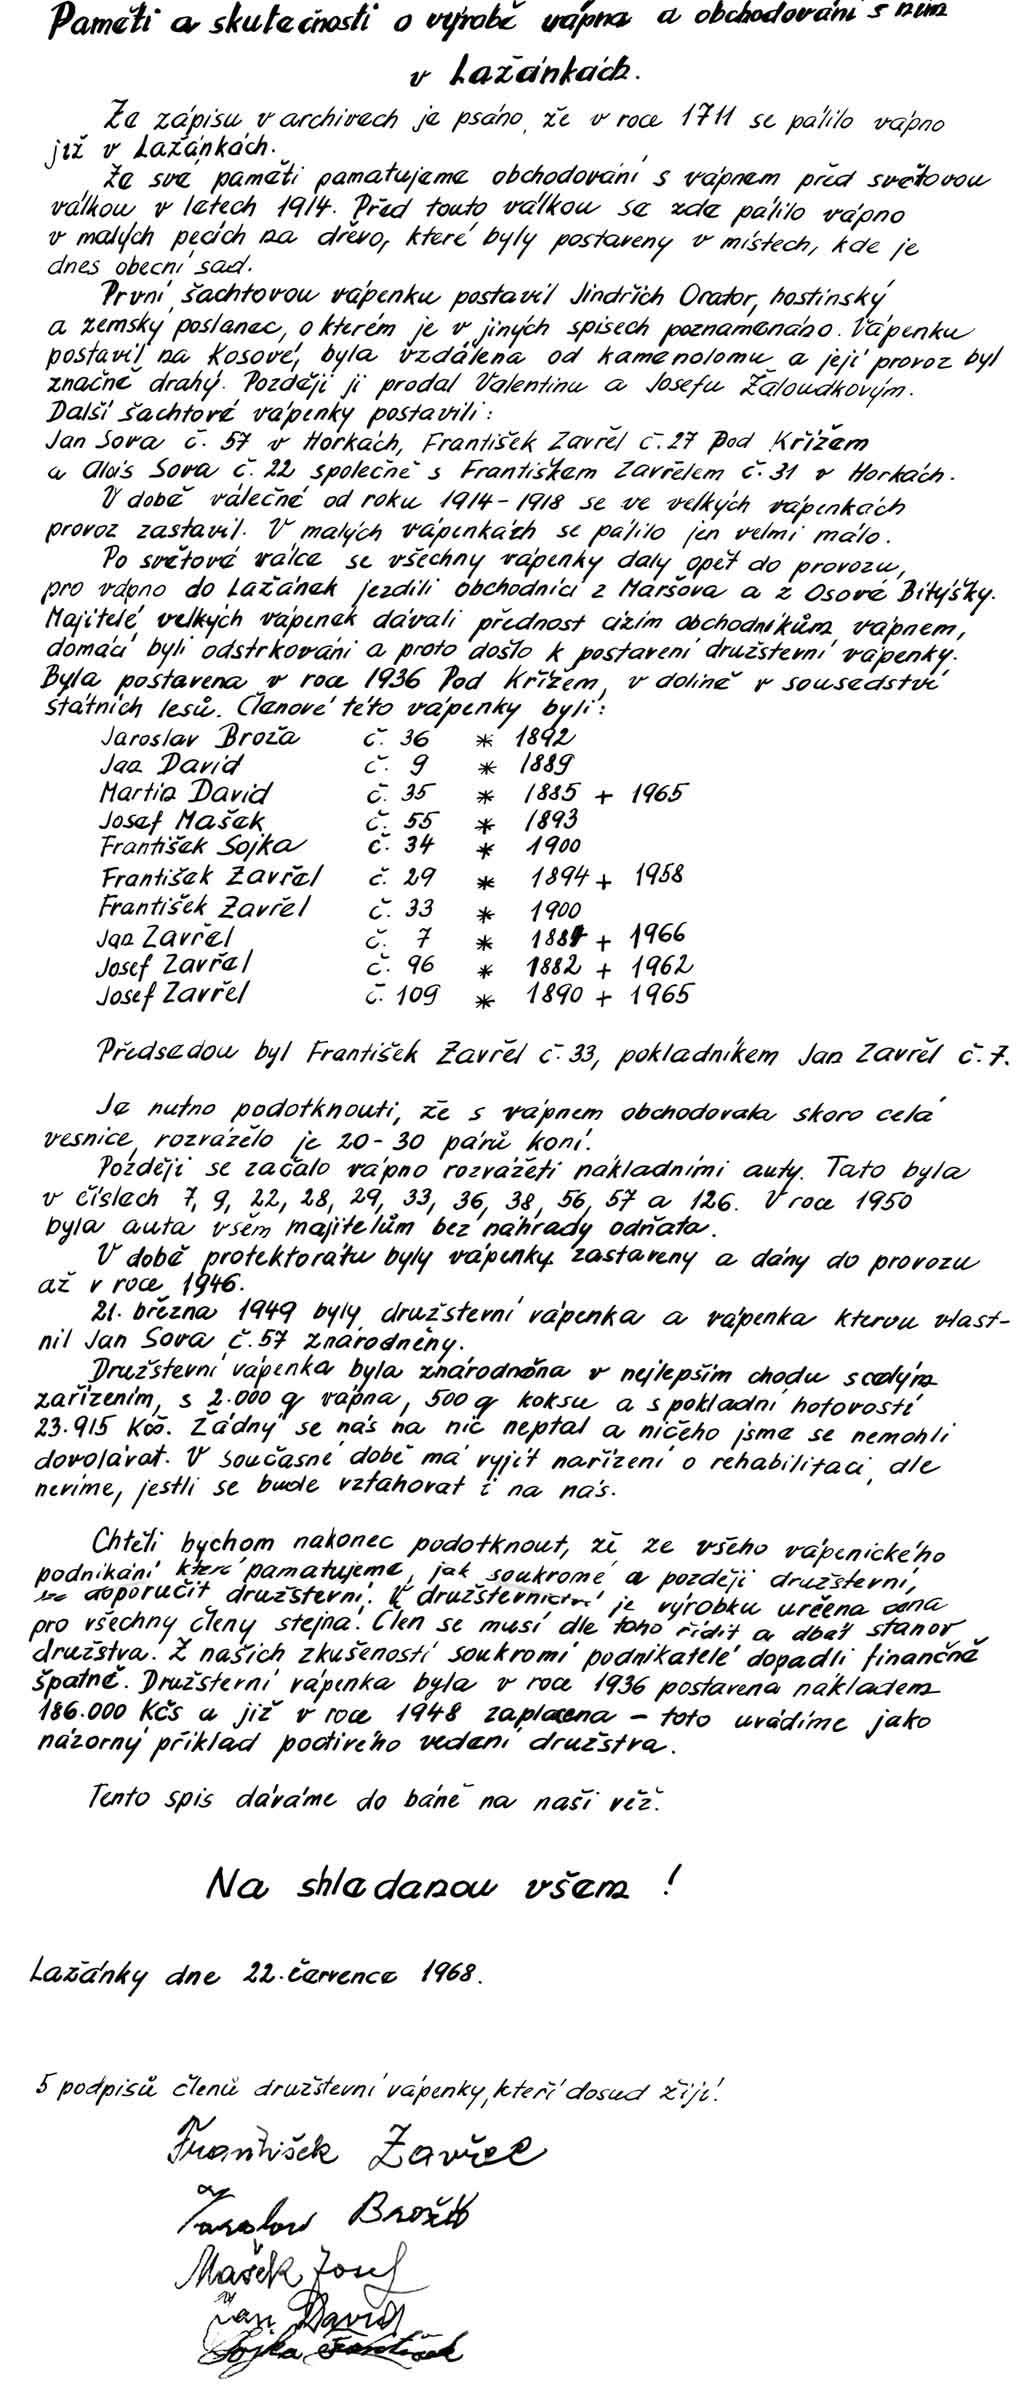 Paměti a skutečnosti o výrobě vápna a obchodování s ním
v Lažánkách.
Ze zápisu v archivech je psáno, že v roce 1711 se pálilo vápno
již v Lažánkách.
Ze své paměti pamatujeme obchodování s vápnem před světovou
válkou v letech 1914. Před touto válkou se zde pálilo vápno
v malých pecích na dřevo, které byly postaveny v místech, kde je
dnes obecní sad.
První šachtovou vápenku postavil Jindřich Orator, hostinský
a zemský poslanec, o kterém je v jiných spisech poznamenáno. Vápenku
postavil na Kosové, byla vzdálena od kamenolomu a její provoz byl
značně drahý. Později ji prodal Valentinu a Josefu Žaloudkovým.
Další šachtové vápenky postavili:
Jan Sova č. 57 v Horkách, František Zavřel č. 27 Pod Křížem
a Alois Sova č. 22 společně s Františkem Zavřelem č. 31 v Horkách.
V době válečné od roku 1914 - 1918 se ve velkých vápenkách
provoz zastavil. V malých vápenkách se pálilo jen velmi málo.
Po světové válce se všechny vápenky daly opět do provozu,
pro vápno do Lažánek jezdili obchodníci z Maršova a z Osové Bitýšky.
Majitelé velkých vápenek dávali přednost cizím obchodníkům vápnem,
domácí byli odstrkováni a proto došlo k postavení družstevní vápenky.
Byla postavena v roce 1936 Pod Křížem, v dolině v sousedství
státních lesů. Členové této vápenky byli:
Jaroslav Broža č. 36 * 1892
Jan David č. 9 * 1889
Martin David č. 35 * 1885 + 1965
Josef Mašek č. 55 * 1893
František Sojka č. 34 * 1900
František Zavřel č. 29 * 1894 + 1958
František Zavřel č. 33 * 1900
Jan Zavřel č. 7 * + 1966
Josef Zavřel č. 96 * 1882 + 1962
Josef Zavřel č. 109 * 1890 + 1965
Předsedou byl František Zavřel č. 33, pokladníkem Jan Zavřel č. 7.
Je nutno podotknouti, že s vápnem obchodovala skoro celá
vesnice, rozváželo je 20 - 30 párů koní.
Později se začalo vápno rozvážeti nákladními auty. Tato byla
v číslech 7, 9, 22, 28, 29, 33, 36, 38, 56, 57 a 126. V roce 1950
byla auta všem majitelům bez náhrady odňata.
V době protektorátu byly vápenky zastaveny a dány do provozu
až v roce 1946.
21. března 1949 byly družstevní vápenka a vápenka kterou vlast-
nil Jan Sova č. 57 znárodněny.
Družstevní vápenka byla znárodněna v nejlepším chodu s celým
zařízením, s 2.000 q vápna, 500 q koksu a s pokladní hotovostí
23.915 Kčs. Žádný se nás na nic neptal a ničeho jsme se nemohli
dovolávat. V současné době má vyjít nařízení o rehabilitaci, dle
nevíme, jestli se bude vztahovat i na nás.
Chtěli bychom nakonec podotknout, že ze všeho vápenického
podnikání které pamatujeme, jak soukromé a později družstevní,
lze doporučit družstevní. V družstevnictví je výrobku určena cena
pro všechny členy stejná. Člen se musí dle toho řídit a dbát stanov
družstva. Z našich zkušeností soukromí podnikatelé dopadli finančně
špatně. Družstevní vápenka byla v roce 1936 postavena nákladem
186.000 Kčs a již v roce 1948 zaplacena - toto uvádíme jako
názorný příklad poctivého vedení družstva.
Tento spis dáváme do báně na naši věž.
Na shledanou všem !
Lažánky dne 22. července 1968.
5 podpisů členů družstevní vápenky, kteří dosud žijí.
František Zavřel
Jaroslav Broža
Mašek Josef
Jan David
Sojka František